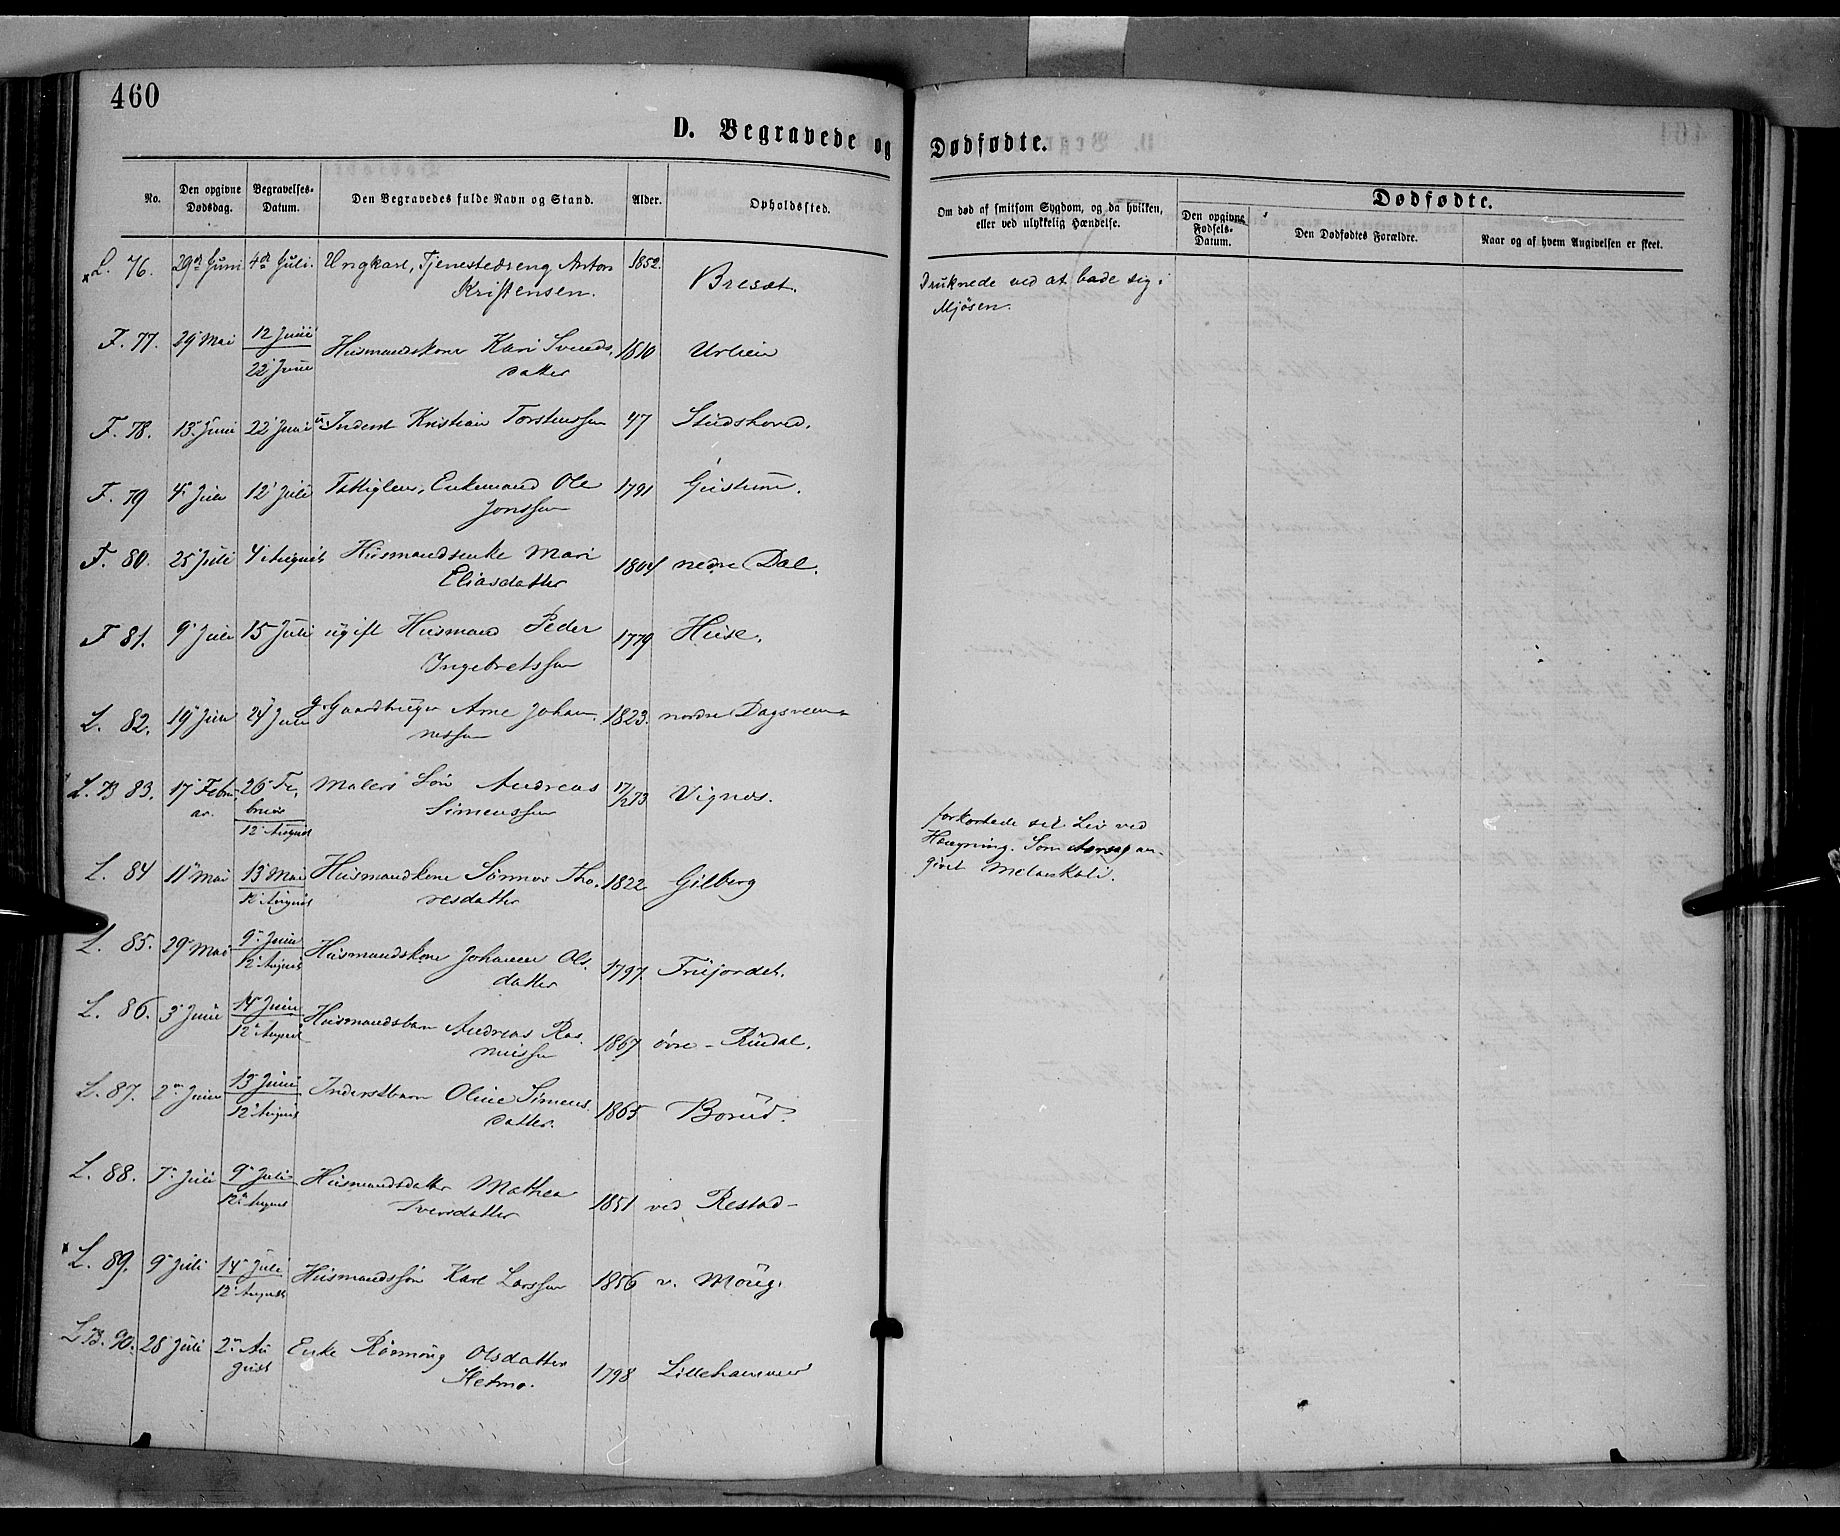 460
D. Begravede og Dødfødte.
No.
Den opgivne Dødsdag.
Begravelses-Datum.
Den Begravedes fulde Navn og Stand.
Alder.
Opholdssted.
Om død af smitsom Sygdom, og da hvilken, eller ved ulykkelig Hændelse.
Dødfødte.
Den opgivne Fødsels-Datum.
Den Dødfødtes Forældre.
Naar og af hvem Angivelsen er skeet.
L. 76. 29de Juni 4de Juli. Ungkarl, Tjenestedreng Anton 1852. Bresæt. Druknede ved at bade sig i
Kristensen. Mjøsen.
F. 77. 29 Mai 12 Juni Husmandskone Kari Svends. 1810 Urlien
22 Juni datter
F. 78. 13 Juni 22 Juni Inderst Kristian Torstenssen 47 Studshoved.
F. 79 4 Juli 12 Juli Enkemand Ole 1791
Jonssen
F. 80. 25 Juli 4 August Husmandsenke Mari 1804 nedre Dal.
Eliasdatter
F 81. 9 Juli 15 Juli ugift Husmand Peder 1779 Huse.
Ingebretssen
L. 82. 19 Juni 24 Juli g. Gaardbruger Arne Johan 1823. nordre
nessen
L.B 83. 17 Febru 26 Fe, Malers Søn Andreas 17/1273 Vignes.
ar. bruar Simenssen
12 August
forkortede sit Liv ved
Hængning. Som Aarsag an-
givet Melankoli.
L. 84 11 Mai 13 Mai Husmandskone Sønnev Tho. 1822 Gilberg
12 August resdatter
L. 85. 29 Mai 9 Juni Husmandskone Johanne Ols. 1797. Frujordet.
12 August datter
L. 86. 3 Juni 14 Juni Husmandsbarn Andreas Ras 1867 øvre - Rudal.
12 August mussen
L. 87. 2 Juni 13 Juni Inderstbarn Oline Simens 1865 Borud.
12 August datter.
L. 88. 7 Juli 9 Juli Husmandsdatter Mathea 1851 ved Restad-
12 August Iversdatter
L. 89. 9 Juli 14 Juli Husmandssøn Karl Larssen 1856 v. Moug.
12 August
L.B. 90. 28 Juli 2 Au Enke Rønnoug Olsdatter 1798 Lillehammer
gust